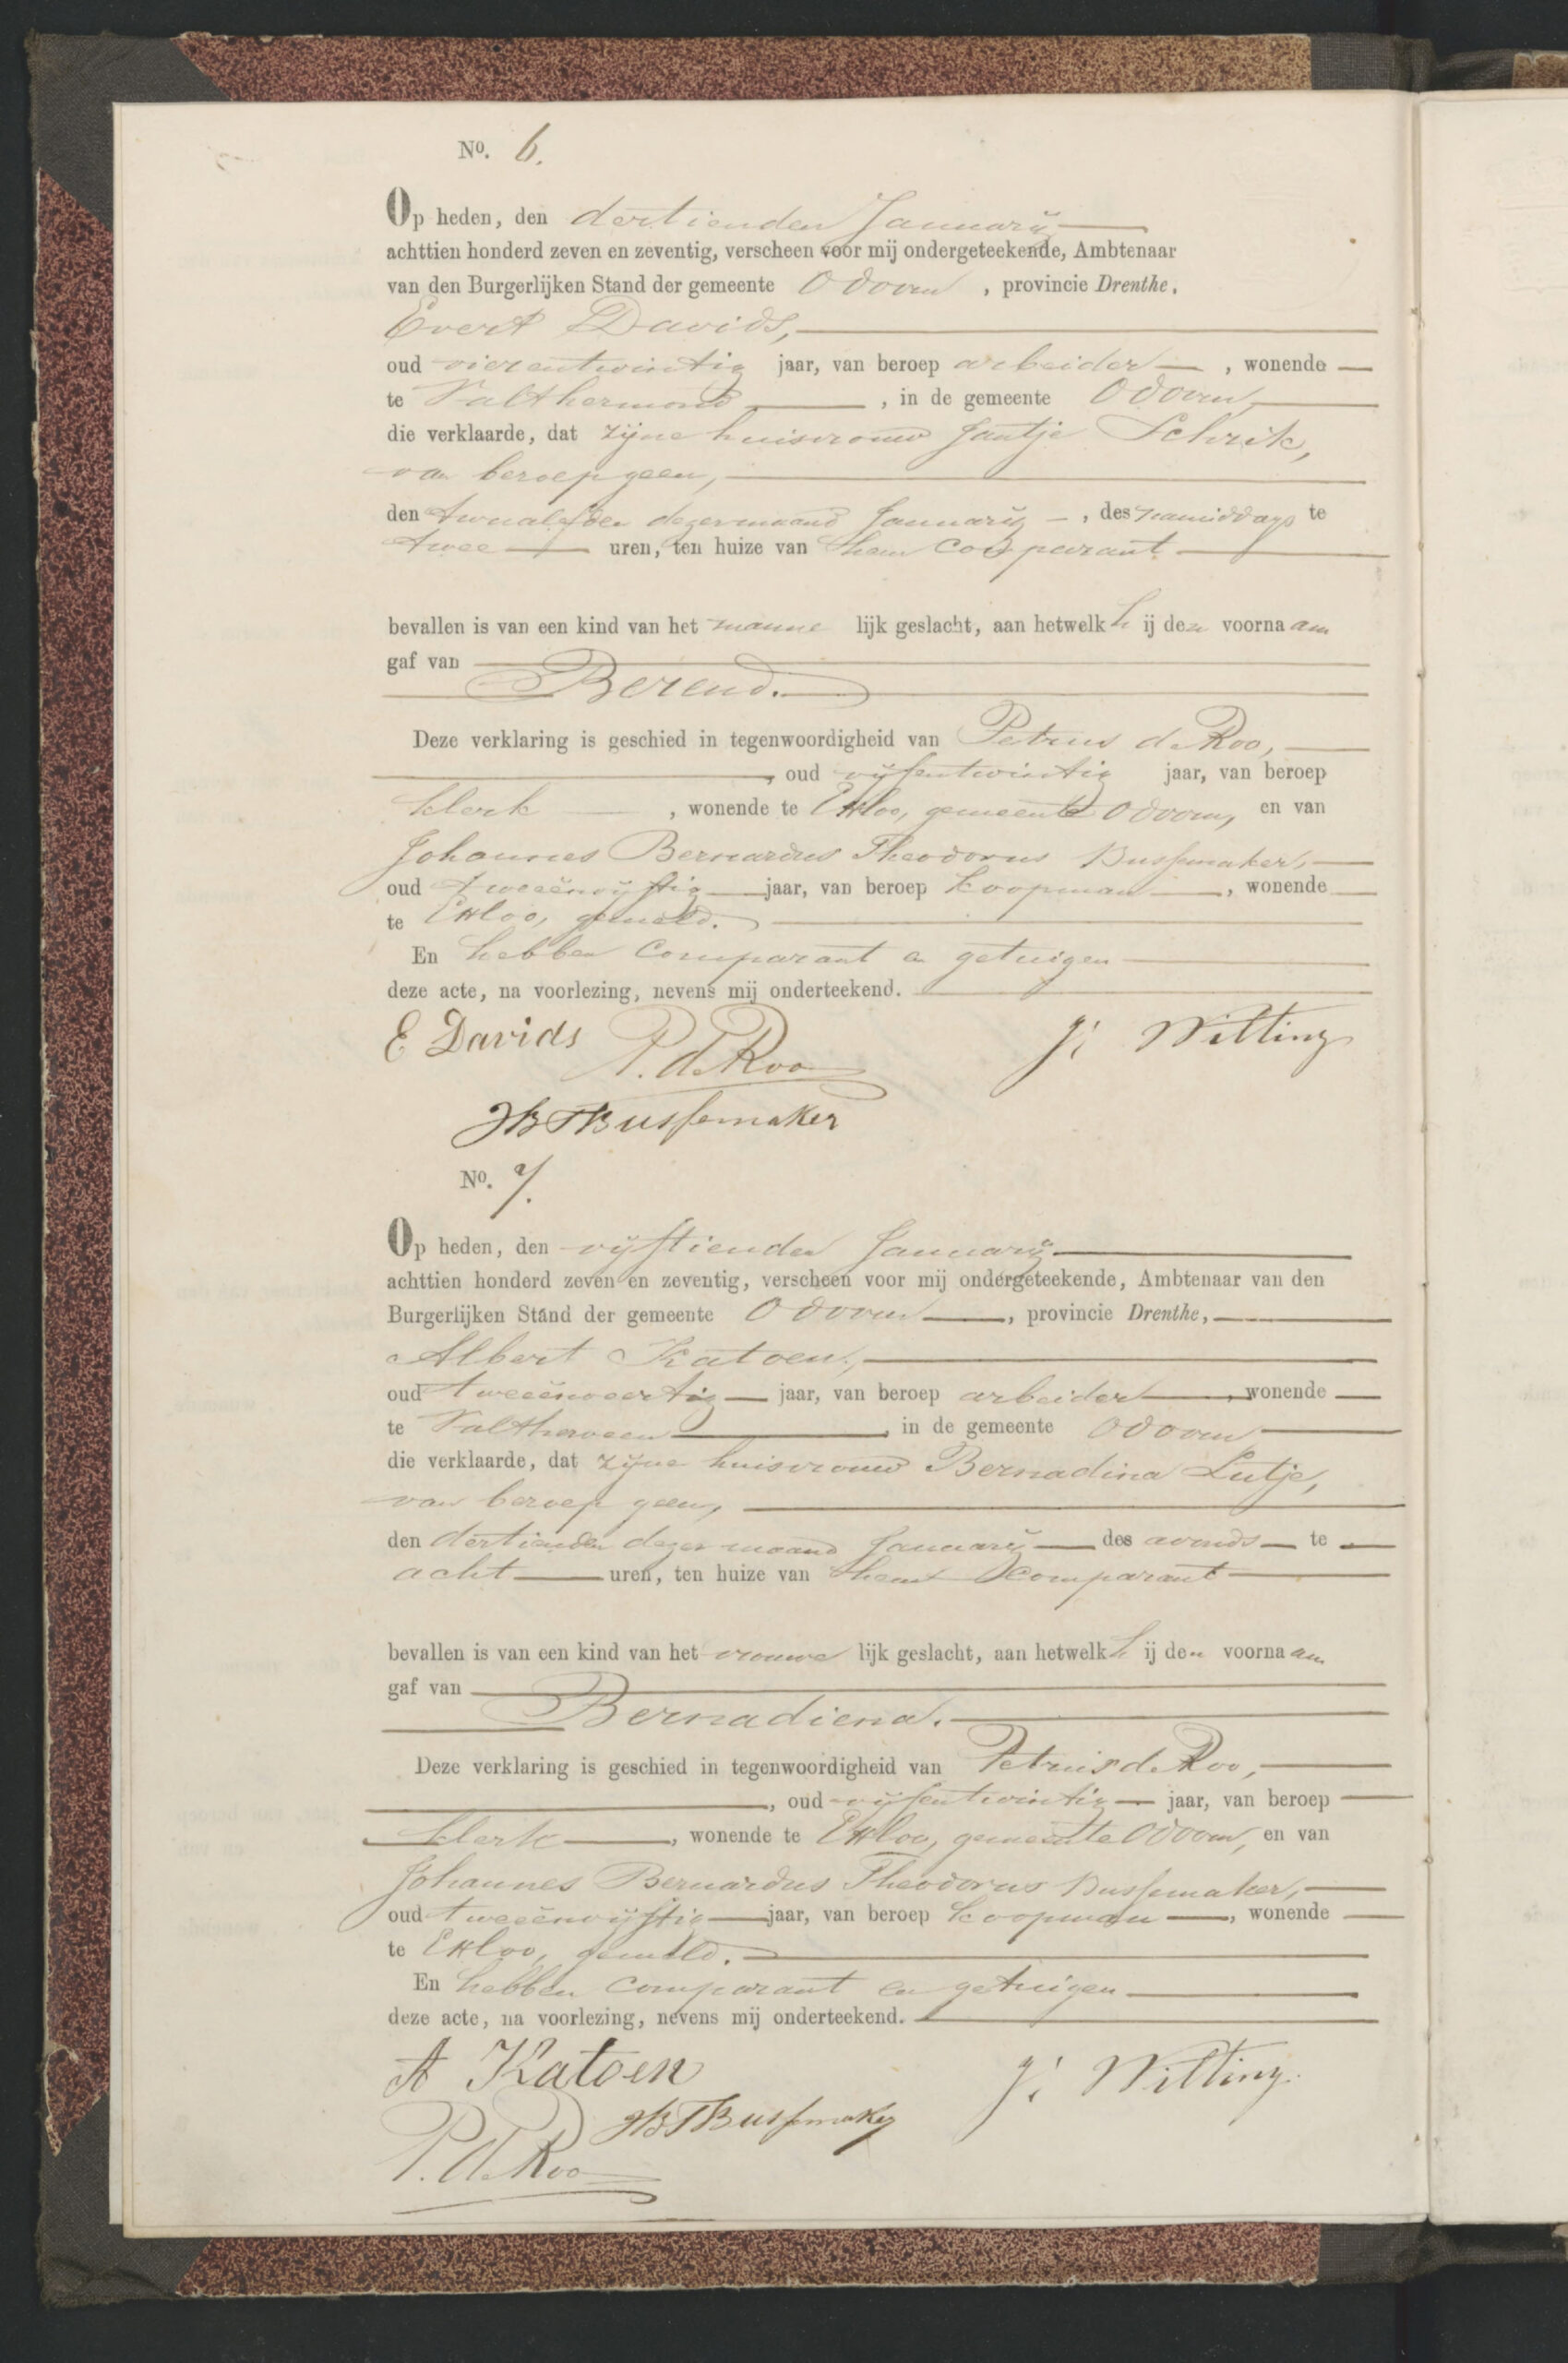 No. 6.
Op heden, den dertienden Januarij
achttien honderd zeven en zeventig, verscheen voor mij ondergeteekende, Ambtenaar
van den Burgerlijken Stand der gemeente Odoorn , provincie Drenthe,
Evert Davids,
oud vierentwintig jaar, van beroep arbeider , wonende
te Valthermond , in de gemeente Odoorn
die verklaarde, dat zijne huisvrouw Jantje Schrik,
van beroep geen,
den twaalfden dezer maand Januarij , des namiddags te
twee uren, ten huize van hem comparant
bevallen is van een kind van het manne lijk geslacht, aan hetwelk h ij den voorna am
gaf van
Berend.
Deze verklaring is geschied in tegenwoordigheid van Petrus de Roo,
, oud vijfentwintig jaar, van beroep
klerk , wonende te Exloo, gemeente Odoorn, en van
Johannes Bernardus Theodorus Bussemaker,
oud tweeënvijftig jaar, van beroep koopman , wonende
te Exloo, gemeld.
En hebben comparant en getuigen
deze acte, na voorlezing, nevens mij onderteekend.
E Davids P. de Roo J: Wilting
JBTBussemaker
No. 7.
Op heden, den vijftienden Januarij
achttien honderd zeven en zeventig, verscheen voor mij ondergeteekende, Ambtenaar van den
Burgerlijken Stand der gemeente Odoorn , provincie Drenthe,
Albert Katoen,
oud tweeënveertig jaar, van beroep arbeider , wonende
te Valtherveen , in de gemeente Odoorn
die verklaarde, dat zijne huisvrouw Bernadina Lutje,
van beroep geen,
den dertienden dezer maand Januarij des avonds te
acht uren, ten huize van hem comparant
bevallen is van een kind van het vrouwe lijk geslacht, aan hetwelk h ij den voorna am
gaf van
Bernadiena.
Deze verklaring is geschied in tegenwoordigheid van Petrus de Roo,
, oud vijfentwintig jaar, van beroep
klerk , wonende te Exloo, gemeente Odoorn, en van
Johannes Bernardus Theodorus Bussemaker,
oud tweeënvijftig jaar, van beroep koopman , wonende
te Exloo, gemeld.
En hebben comparant en getuigen
deze acte, na voorlezing, nevens mij onderteekend.
A Katoen J: Wilting
JBTBussemaker
P. de Roo